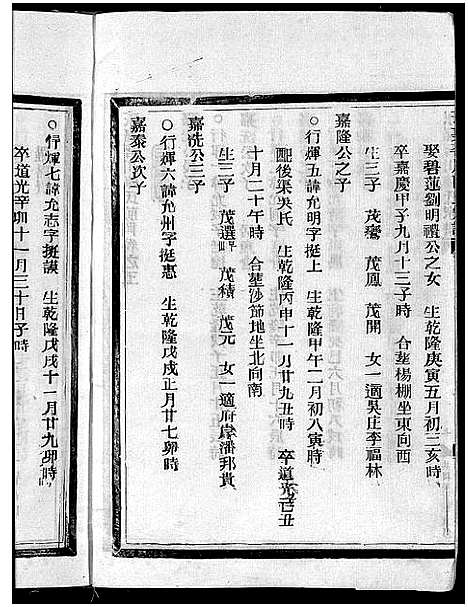 娶碧蓮劉明禮公之女　生乾隆庚寅五月初三亥時
卒嘉慶甲子九月十三子時　合塟楊棚坐東向西
生三子　茂鸞　茂鳳　茂開　女一適吳庄李福林
嘉隆公之子
○行輝五諱允明字挺上　生乾隆甲午二月初八寅時
配後渠吳氏　生乾隆丙申十一月廿九丑時　卒道光己丑
十月二十午時　合塟沙節地坐北向南
生三子　茂選　茂積　茂元　女一適府潘邦貴
嘉洗公三子
○行輝六諱允州字挺惠　生乾隆戊戌正月廿七卯時
嘉泰公次子
○行輝七諱允志字挺謨　生乾隆戊戌十一月廿九卯時
卒道光辛卯十一月三十日子時